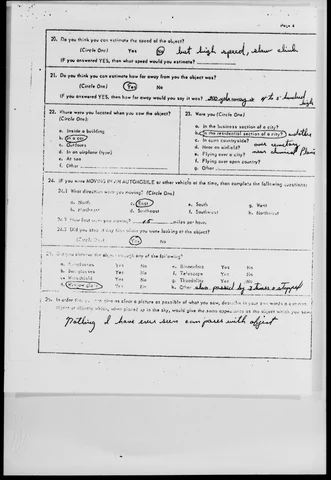 Page 4
20. Do you think you can estimate the speed of the object?
(Circle One) Yes No but high speed, slow climb
IF you answered YES, then what speed would you estimate?
21. Do you think you can estimate how far away from you the object was?
(Circle One) Yes No
IF you answered YES, then how far away would you say it was?
high
22. Where were you located when you saw the object?
(Circle One)
a. Inside a building
b. In a car
c. Outdoors
d. In an airplane (type)
e. At sea
f. Other
23. Were you (Circle One)
a. In the business section of a city?
b. In the residential section of a city?
c. In open countryside?
d. Near an airfield?
e. Flying over a city?
f. Flying over open country?
g. Other
over cemetery
near
24. IF you were MOVING IN AN AUTOMOBILE or other vehicle at the time, then complete the following questions:
24.1 What direction were you moving? (Circle One)
a. North c. East e. South g. West
b. Northeast d. Southeast f. Southwest h. Northwest
24.2 How fast were you moving? 15 miles per hour.
24.3 Did you stop at any time while you were looking at the object?
(Circle One) Yes No
25. Did you observe the object through any of the following?
a. Eyeglasses Yes No e. Binoculars Yes No
b. Sun glasses Yes No f. Telescope Yes No
c. Windshield Yes No g. Theodolite Yes No
d. Window glass Yes No h. Other
26. In order that you can give as clear a picture as possible of what you saw, describe in your own words a common
object or objects which, when placed up in the sky, would give the same appearance as the object which you saw.
Nothing I have ever seen compares with object